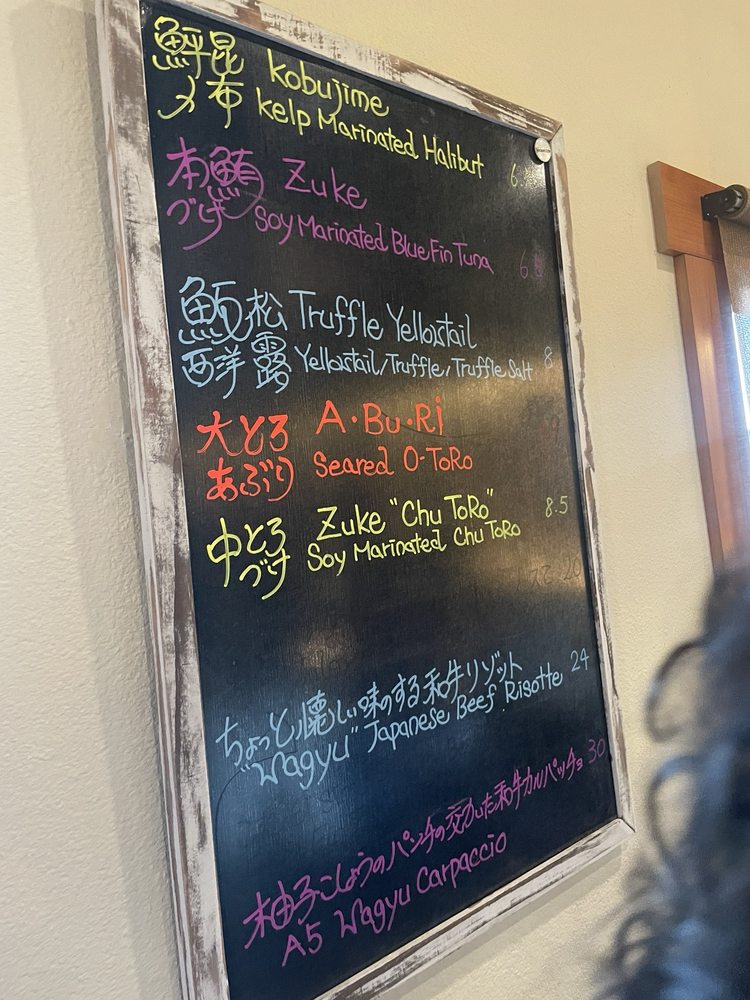 鮃昆 kobujime
〆布 kelp Marinated Halibut
本鮪 Zuke
づけ Soy Marinated Blue Fin Tuna
魬松 Truffle Yellowtail
西洋露 Yellowtail/Truffle/Truffle Salt 8
大とろ A・Bu・Ri
あぶり Seared O-ToRo
中とろ Zuke "Chu ToRo" 8.5
づけ Soy Marinated Chu ToRo
ちょっと懐しい味のする和牛リゾット 24
"Wagyu" Japanese Beef Risotte
柚子こしょうのパンチの効いた和牛カルパッチョ 30
A5 Wagyu Carpaccio